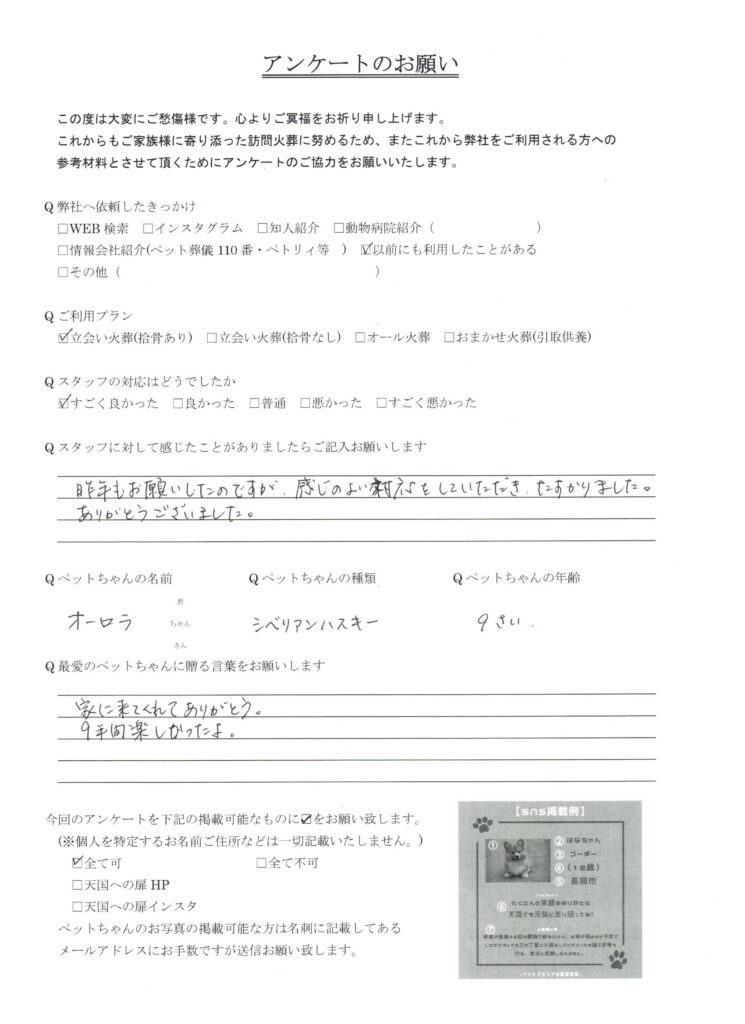 アンケートのお願い
この度は大変にご愁傷様です。心よりご冥福をお祈り申し上げます。
これからもご家族様に寄り添った訪問火葬に努めるため、またこれから弊社をご利用される方への
参考材料とさせて頂くためにアンケートのご協力をお願いいたします。
Q 弊社へ依頼したきっかけ
□WEB 検索 □インスタグラム □知人紹介 □動物病院紹介（ ）
□情報会社紹介(ペット葬儀 110 番・ペトリィ等 ) ☑以前にも利用したことがある
□その他（ ）
Q ご利用プラン
☑立会い火葬(拾骨あり) □立会い火葬(拾骨なし) □オール火葬 □おまかせ火葬(引取供養)
Q スタッフの対応はどうでしたか
☑すごく良かった □良かった □普通 □悪かった □すごく悪かった
Q スタッフに対して感じたことがありましたらご記入お願いします
昨年もお願いしたのですが、感じのよい対応をしていただき、たすかりました。
ありがとうございました。
Q ペットちゃんの名前 Q ペットちゃんの種類 Q ペットちゃんの年齢
君
オーロラ ちゃん シベリアンハスキー 9さい.
さん
Q 最愛のペットちゃんに贈る言葉をお願いします
家に来てくれてありがとう。
9年間楽しかったよ。
今回のアンケートを下記の掲載可能なものに☑をお願い致します。
(※個人を特定するお名前ご住所などは一切記載いたしません。)
☑全て可 □全て不可
□天国への扉 HP
□天国への扉インスタ
ペットちゃんのお写真の掲載可能な方は名刺に記載してある
メールアドレスにお手数ですが送信お願い致します。
【sns掲載例】
① ② はなちゃん
③ コーギー
④ (12歳)
⑤ 長岡市
⑥ たくさんの笑顔をありがとう
天国でも元気に走り回ってね!
⑦